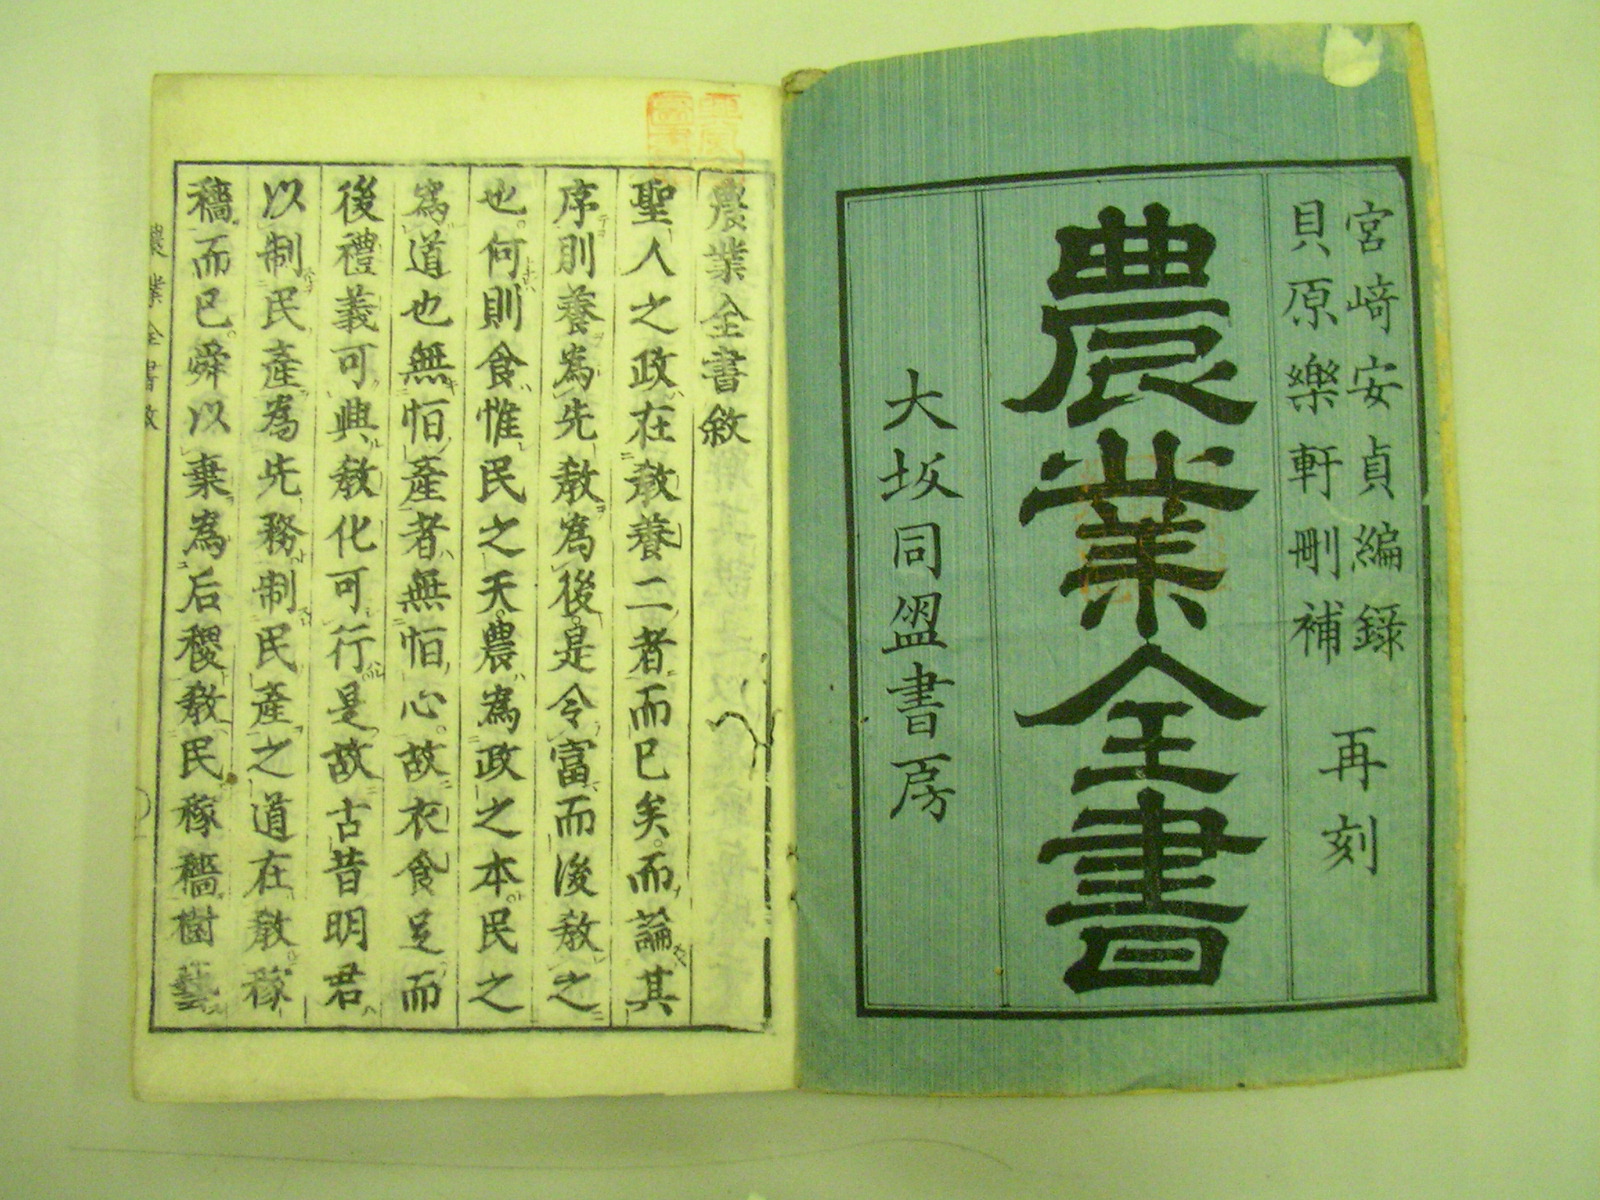 宮﨑安貞編錄
貝原樂軒刪補
再刻
農業全書
大坂同盟書房
農業全書敘
聖人之政在敎養二者而已矣。而論其
序則養爲先敎爲後。是令富而後敎之
也。何則食惟民之天。農爲政之本。民之
爲道也無恒產者無恒心。故衣食足而
後禮義可興敎化可行。是故古昔明君
以制民產爲先務。制民產之道在敎稼
穡而已。舜以棄爲后稷敎民稼穡樹藝
農業全書敘